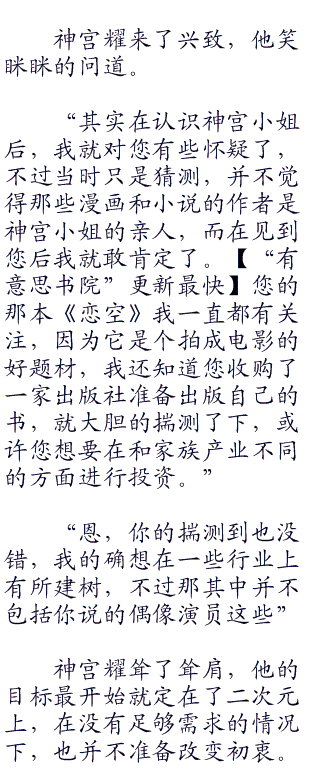 神宫耀来了兴致，他笑
眯眯的问道。
“其实在认识神宫小姐
后，我就对您有些怀疑了，
不过当时只是猜测，并不觉
得那些漫画和小说的作者是
神宫小姐的亲人，而在见到
您后我就敢肯定了。【“有
意思书院”更新最快】您的
那本《恋空》我一直都有关
注，因为它是个拍成电影的
好题材，我还知道您收购了
一家出版社准备出版自己的
书，就大胆的揣测了下，或
许您想要在和家族产业不同
的方面进行投资。”
“恩，你的揣测到也没
错，我的确想在一些行业上
有所建树，不过那其中并不
包括你说的偶像演员这些”
神宫耀耸了耸肩，他的
目标最开始就定在了二次元
上，在没有足够需求的情况
下，也并不准备改变初衷。